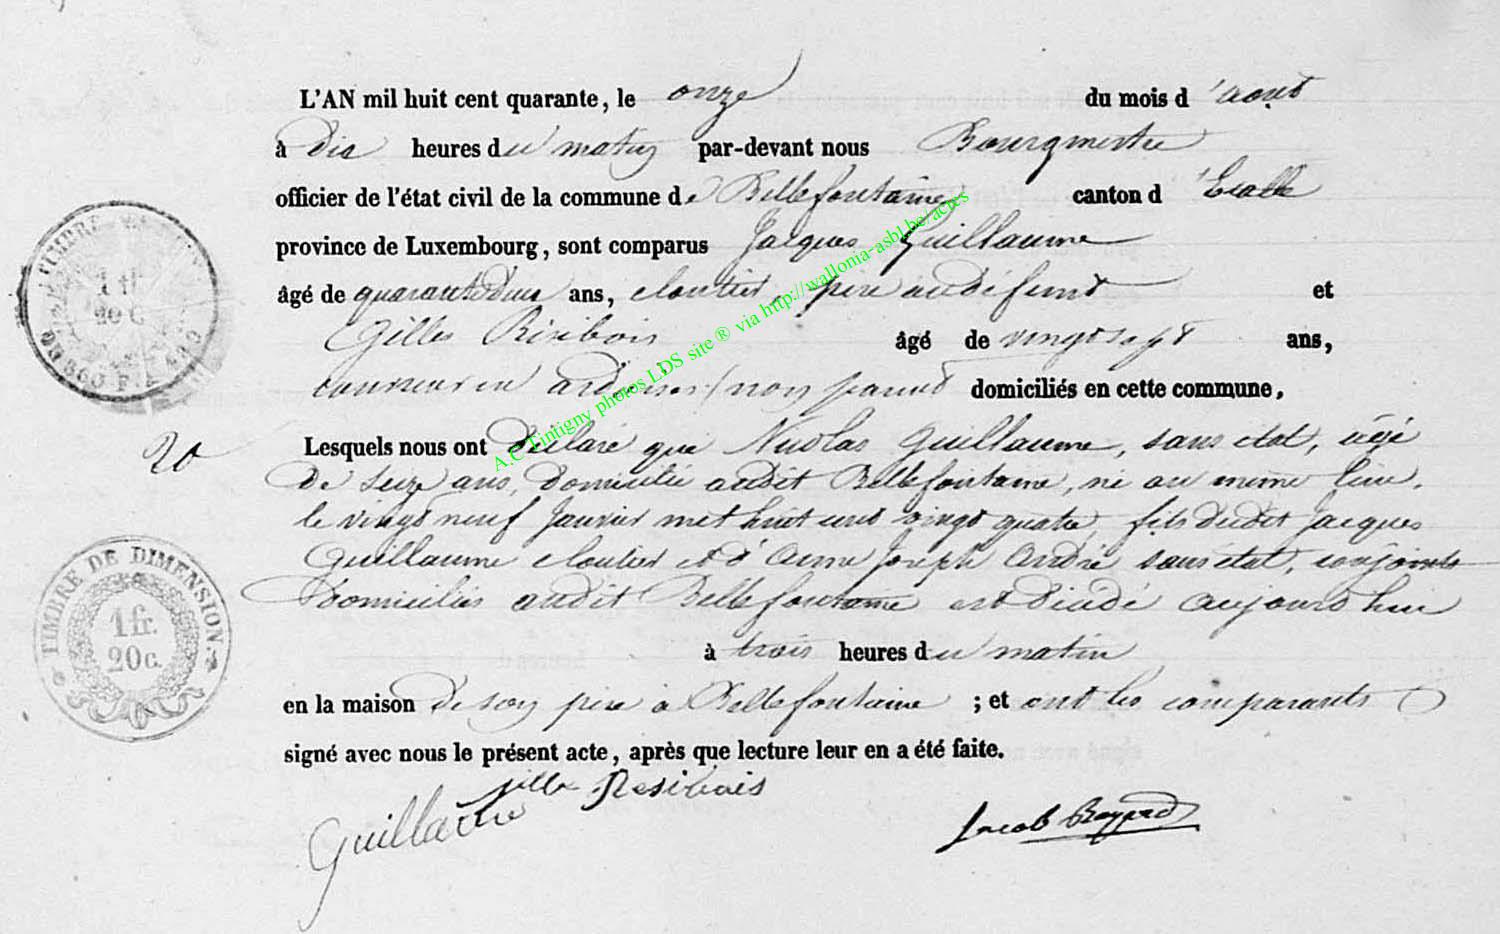 L'AN mil huit cent quarante, le onze du mois d'aout
à dix heures du matin par-devant nous Bourgmestre
officier de l'état civil de la commune de Bellefontaine canton d'Etalle
province de Luxembourg, sont comparus Jacques Guillaume
âgé de quarante deux ans, cloutier, père au défunt et
Gilles Résibois âgé de vingt sept ans,
couvreur en ardoises (non parent domiciliés en cette commune,
20
Lesquels nous ont déclaré que Nicolas Guillaume, sans état, agé
de seize ans, domicilié audit Bellefontaine, né au même lieu,
le vingt neuf Janvier mil huit cent vingt quatre, fils dudit Jacques
Guillaume cloutier et d'Anne Joseph André sans état, conjoints
Domiciliés audit Bellefontaine est décédé aujourd'hui
à trois heures du matin
en la maison de son père à Bellefontaine ; et ont les comparants
signé avec nous le présent acte, après que lecture leur en a été faite.
Guillaume gille Resibois
Jacob
TIMBRE
TIMBRE DE DIMENSION.
1 fr.
20 c.
A.C Tintigny photos LDS site ® via http://wallonia-asbl.be/actes